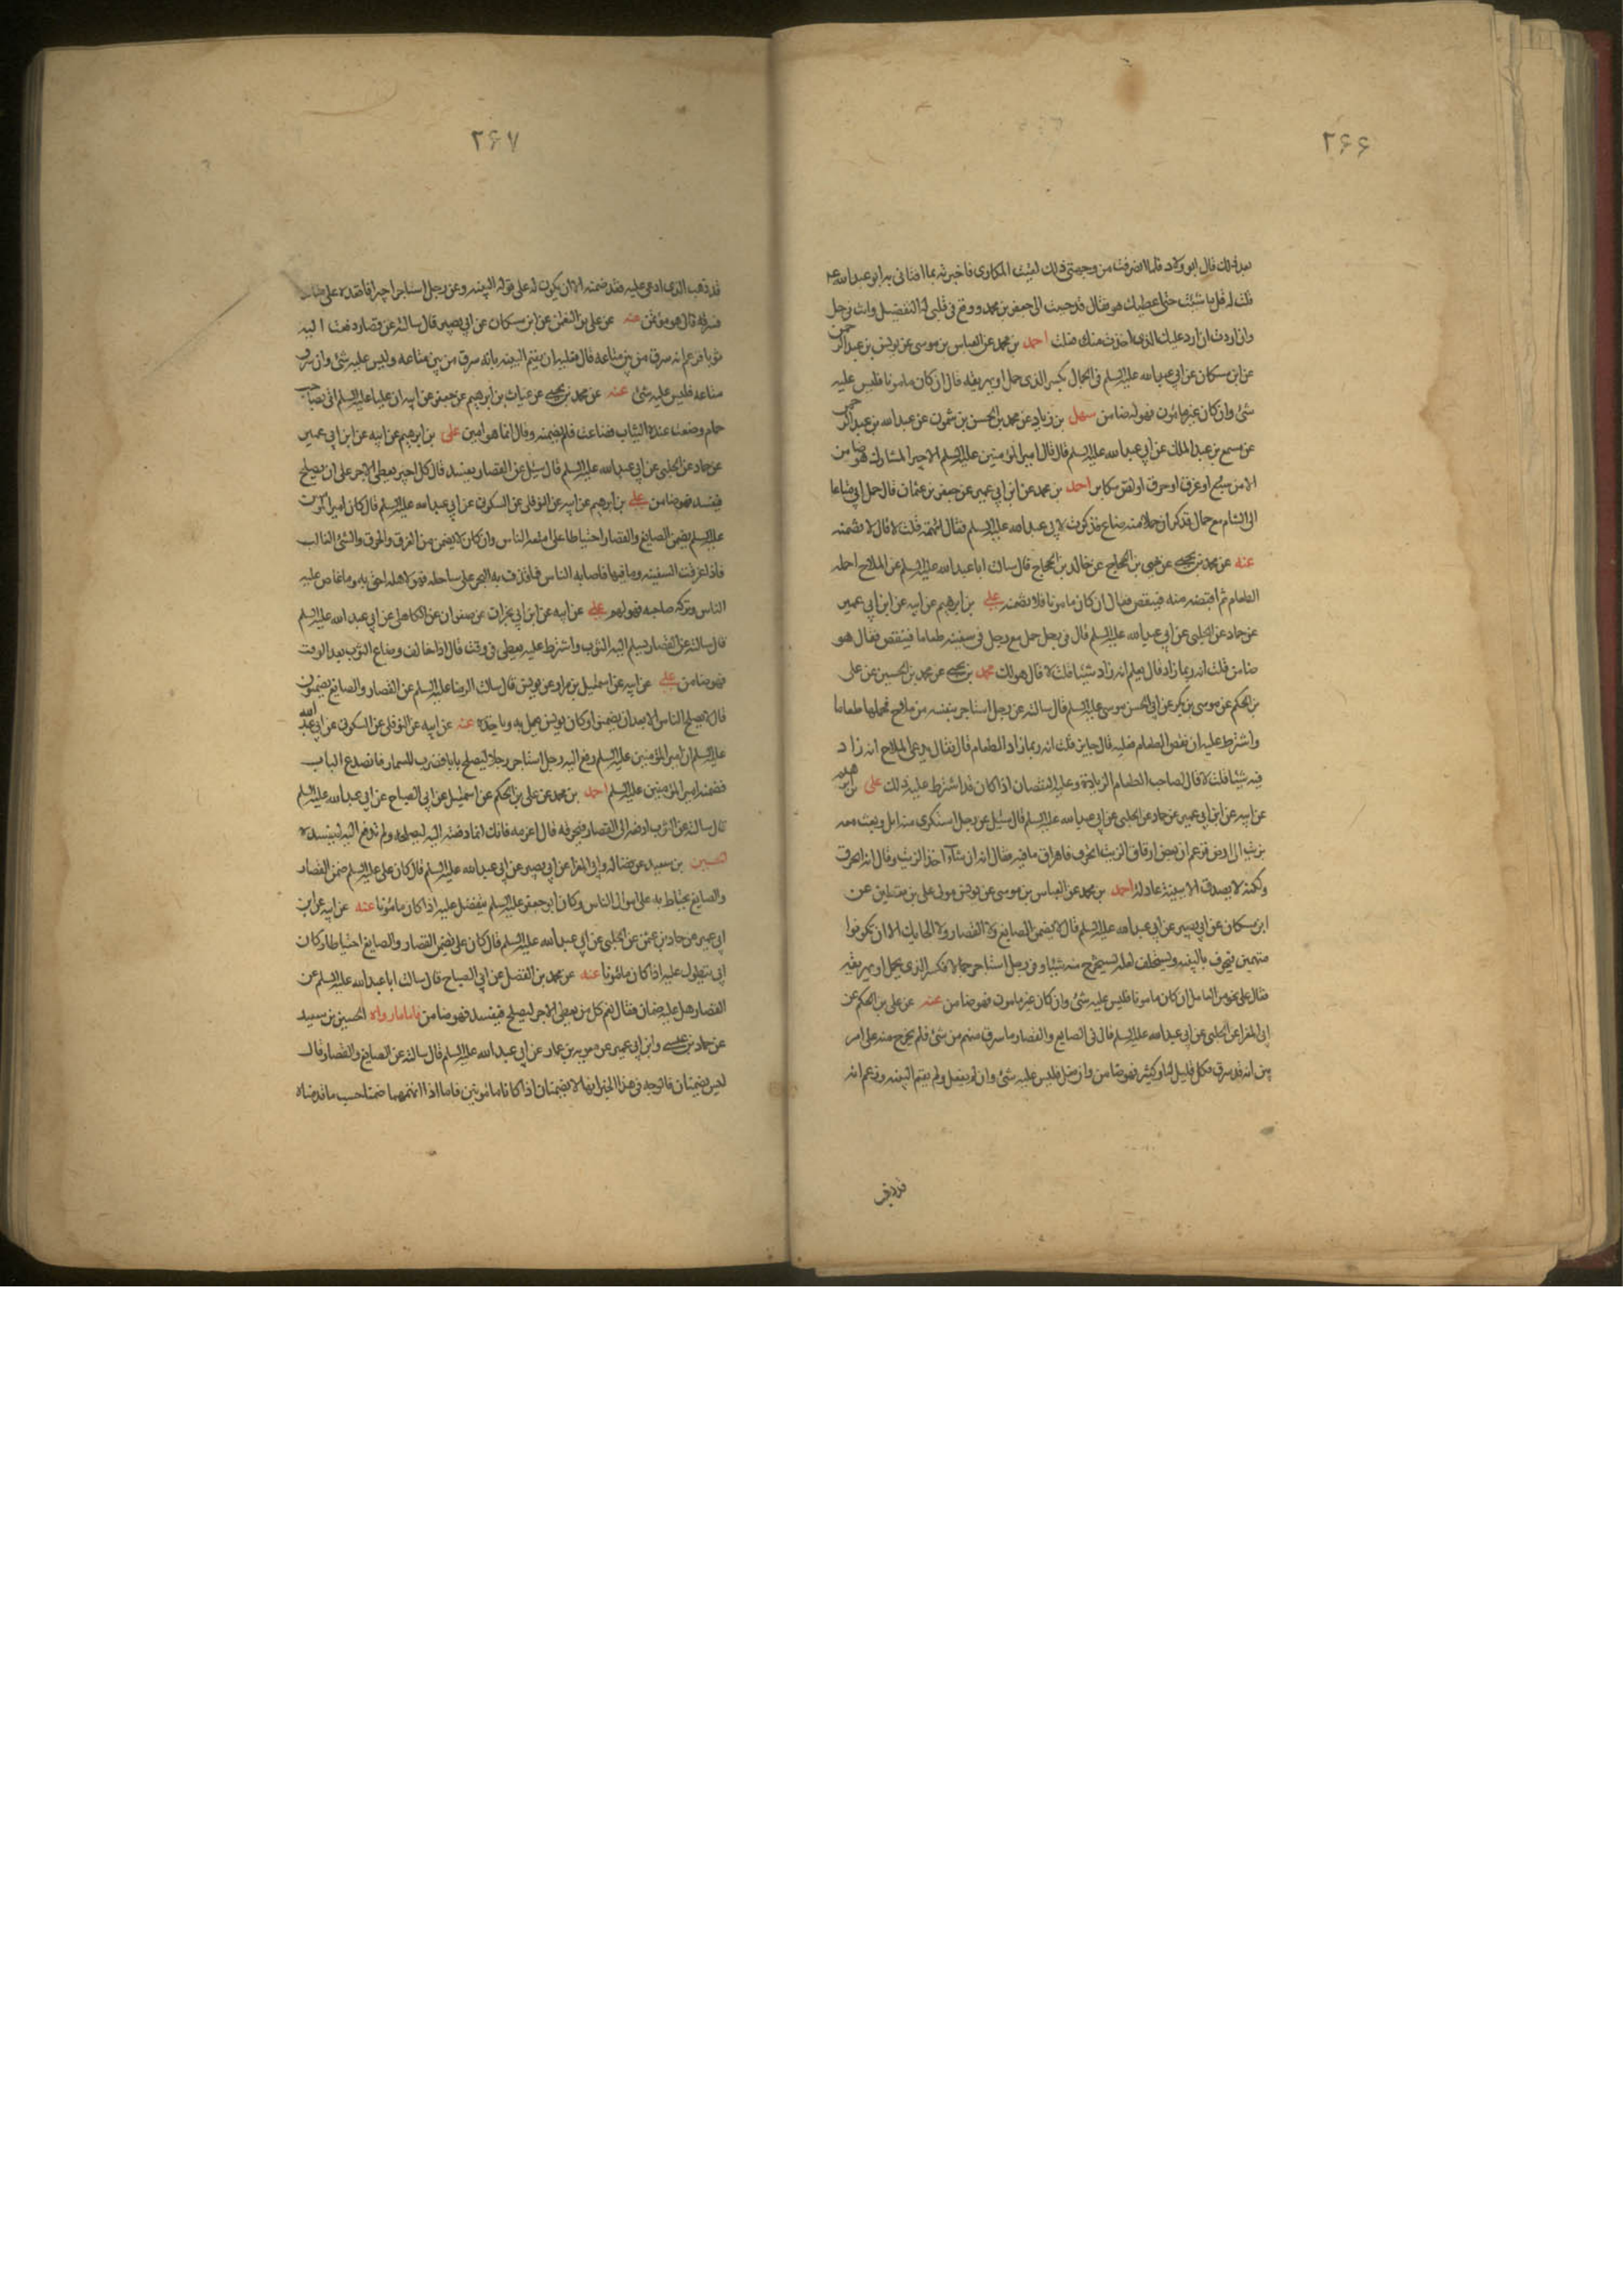 ٢۶۶
بعد ذلك قال ابو ولاد فلما انصرفت من وجهتي ذلك لقيت المكاري فاخبرته بما افتاني به ابو عبدالله ع
قلت له قل ما شئت حتى اعطيك هو فقال قد حببت الى جعفر بن محمد ووقع في قلبي له التفضيل وانت في حل
وان اردت ان ارد عليك الذي اخذت منك فعلت احمد بن محمد عن العباس بن موسى عن يونس بن عبد الرحمن
عن ابن مسكان عن ابي عبدالله عليه السلم في الجمال يكسر الذي حمل او يهريقه قال ان كان مامونا فليس عليه
شئ وان كان غير مأمون فهو له ضامن سهل بن زياد عن محمد بن الحسن بن شمون عن عبدالله بن عبد الرحمن
عن مسمع بن عبد الملك عن ابي عبدالله عليه السلم قال قال امير المؤمنين عليه السلم الاجير المشارك هو ضامن
الا من سبع او غرق او حرق او لص مكابر احمد بن محمد عن ابن ابي عمير عن جعفر بن عثمان قال حمل ابي متاعا
الى الشام مع جمال فذكر ان حملا منه ضاع فذكرت لابي عبدالله عليه السلم فقال اتتهمه قلت لا قال لا تضمنه
عنه عن محمد بن يحيى عن يحيى بن الحجاج عن خالد بن الحجاج قال سالت ابا عبدالله عليه السلم عن الملاح احمله
الطعام ثم اقبضه منه فينقص فقال ان كان مامونا فلا تضمنه علي بن ابرهيم عن ابيه عن ابن ابي عمير
عن حماد عن الحلبي عن ابي عبدالله عليه السلم قال في رجل حمل مع رجل في سفينته طعاما فينقص فقال هو
ضامن قلت انه ربما زاد قال يعلم انه زاد شيئا قلت لا قال هو لك محمد بن يحيى عن محمد بن الحسين عن على
بن الحكم عن موسى بن بكر عن ابي الحسن موسى عليه السلم قال سالته عن رجل استاجر سفينه من ملاح فحملها طعاما
واشترط عليه ان نقص الطعام فعليه قال جايز قلت انه ربما زاد الطعام قال فقال يدعي الملاح انه زاد
فيه شيئا قلت لا قال لصاحب الطعام الزيادة وعليه النقصان اذا كان قد اشترط عليه ذلك على بن ابرهيم
عن ابيه عن ابن ابي عمير عن حماد عن الحلبي عن ابي عبدالله عليه السلم قال سئل عن رجل استكرى منه ابل وبعث معه
بزيت الى ارض فزعم ان بعض ازقاق الزيت انخرق فاهراق ما فيه فقال انه ان شاء اخذ الزيت وقال انه انخرق
ولكنه لا يصدق الا ببينة عادلة احمد بن محمد عن العباس بن موسى عن يونس مولى على بن يقطين عن
ابن مسكان عن ابي بصير عن ابي عبدالله عليه السلم قال لا يضمن الصايغ ولا القصار ولا الحايك الا ان يكونوا
متهمين فيخوف بالبينه ويستحلف لعله يستخرج منه شيئا وفي رجل استاجر جمالا فكسر الذي يحمل او يهريقه
فقال على نحو من العامل ان كان مامونا فليس عليه شئ وان كان غير مامون فهو ضامن عنه عن على بن الحكم عن
ابي المغرا عن الحلبي عن ابي عبدالله عليه السلم قال في الصايغ والقصار ما سرق منهم من شئ فلم يخرج منه على امر
بين انه قد سرق فكل قليل له او كثير فهو ضامن وان فعل فليس عليه شئ وان لم يفعل ولم يقم البينه وزعم انه
٢۶٧
قد ذهب الذي ادعى عليه فقد ضمنه الا ان يكون له على قوله البينه وعن رجل استاجر اجيرا فاقعده على متاعه
فسرقه قال هو مؤتمن عنه عن على بن النعمن عن ابن مسكان عن ابي بصير قال سالته عن قصار دفعت اليه
ثوبا فزعم انه سرق من بين متاعه قال فعليه ان يقيم البينه بانه سرق من بين متاعه وليس عليه شئ وان سرق
متاعه فليس عليه شئ عنه عن محمد بن يحيى عن غياث بن ابرهيم عن جعفر عن ابيه ان عليا عليه السلم اتى بصاحب
حمام وضعت عنده الثياب فضاعت فلم يضمنه وقال انما هو امين على بن ابرهيم عن ابيه عن ابن ابي عمير
عن حماد عن الحلبي عن ابي عبدالله عليه السلم قال سئل عن القصار يفسد قال كل اجير يعطى الاجر على ان يصلح
فيفسد فهو ضامن علي بن ابرهيم عن ابيه عن النوفلي عن السكوني عن ابي عبدالله عليه السلم قال كان امير المؤمنين
عليه السلم يضمن الصايغ والقصار احتياطا على امتعه الناس وان كان لا يضمن من الغرق والحرق والشئ الغالب
فاذا غرقت السفينه وما فيها فاصابه الناس فما قذف به البحر على ساحله فهو لاهله احق به وما غاص عليه
الناس وتركه صاحبه فهو لهم علي عن ابيه عن ابن ابي نجران عن صفوان عن الكاهلي عن ابي عبدالله عليه السلم
قال سالته عن القصار يسلم اليه الثوب واشترط عليه يعطى في وقت قال اذا خالف وضاع الثوب بعد الوقت
فهو ضامن علي عن ابيه عن اسمعيل بن مرار عن يونس قال سالت الرضا عليه السلم عن القصار والصايغ يضمنون
قال لا يصلح الناس الا بعد ان يضمنوا وكان يونس يعمل به وياخذه عنه عن ابيه عن النوفلي عن السكوني عن ابي عبدالله
عليه السلم ان امير المؤمنين عليه السلم رفع اليه رجل استاجر رجلا ليصلح بابا فضرب المسمار فانصدع الباب
فضمنه امير المؤمنين عليه السلم احمد بن محمد عن على بن الحكم عن اسمعيل عن ابي الصباح عن ابي عبدالله عليه السلم
قال سالته عن الثوب ادفعه الى القصار فيحرقه قال اغرمه فانك انما دفعته اليه ليصلحه ولم تدفع اليه ليفسده
الحسين بن سعيد عن فضاله وابي المغرا عن ابي بصير عن ابي عبدالله عليه السلم قال كان على عليه السلم ضمن القصار
والصايغ يحتاط به على اموال الناس وكان ابو جعفر عليه السلم يتفضل عليه اذا كان مامونا عنه عن ابيه عن ابن
ابي عمير عن حماد بن عثمن عن الحلبي عن ابي عبدالله عليه السلم قال كان على يضمن القصار والصايغ احتياطا وكان
ابي يتطول عليه اذا كان مامونا عنه عن محمد بن الفضل عن ابي الصباح قال سالت ابا عبدالله عليه السلم عن
القصار هل عليه ضمان فقال نعم كل من يعطى الاجر ليصلح فيفسد فهو ضامن فاما ما رواه الحسين بن سعيد
عن حماد بن عيسى وابن ابي عمير عن معويه بن عمار عن ابي عبدالله عليه السلم قال سالته عن الصايغ والقصار قال
ليس يضمنان فالوجه في هذا الخبر انهما لا يضمنان اذا كانا مامونين فاما اذا اتهمهما ضمنا حسب ما قدمناه